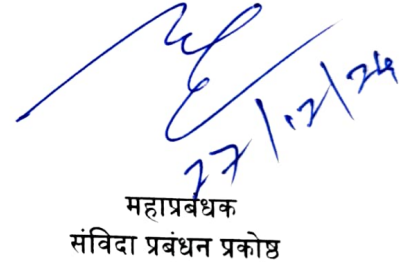 27/12/24
महाप्रबंधक
संविदा प्रबंधन प्रकोष्ठ